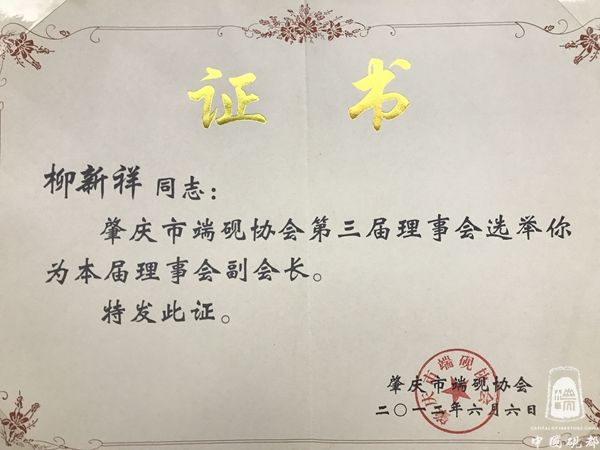 证 书
柳新祥 同志：
肇庆市端砚协会第三届理事会选举你
为本届理事会副会长。
特发此证。
肇庆市端砚协会
肇庆市端砚协会
二〇一二年六月六日
端
CAPITAL OF INKSTONE, CHINA
中国砚都